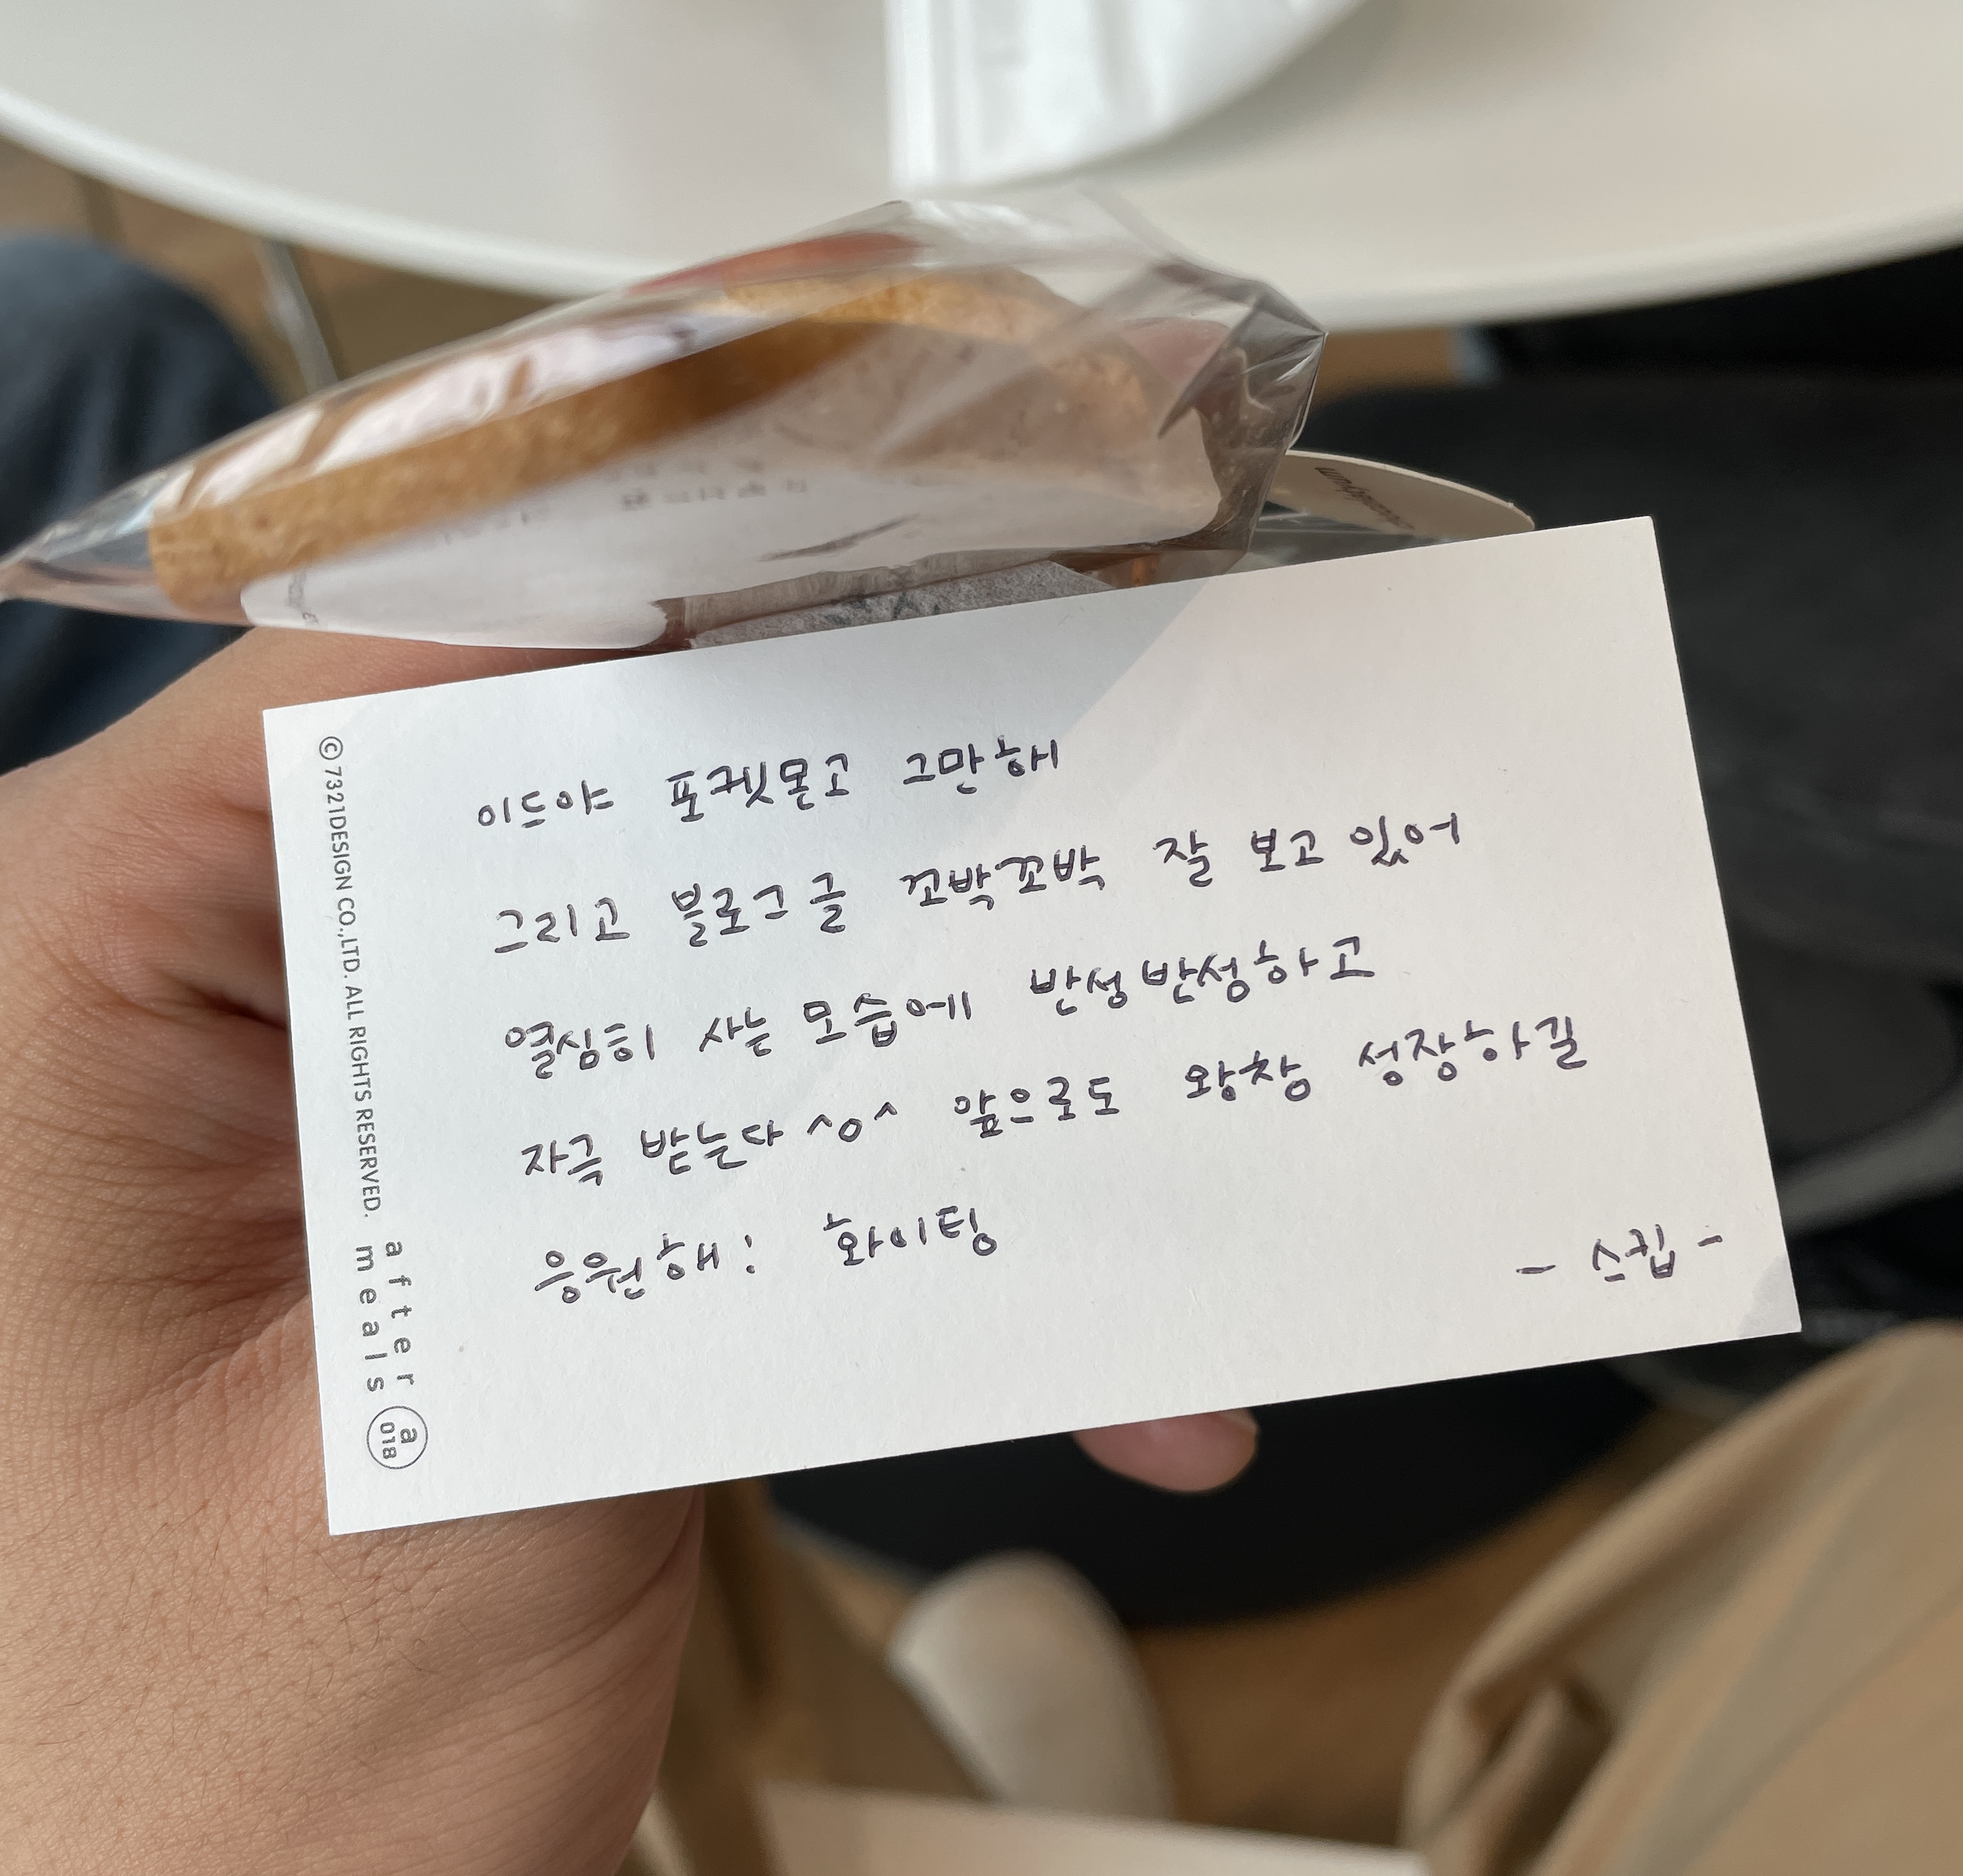 이드야 포켓몬고 그만해
그리고 블로그 글 꼬박꼬박 잘 보고 있어
열심히 사는 모습에 반성반성하고
자극 받는다 ^o^ 앞으로도 왕창 성장하길
응원해! 화이팅
- 스킵 -
©7321DESIGN CO.,LTD. ALL RIGHTS RESERVED.
after
meals
a
018